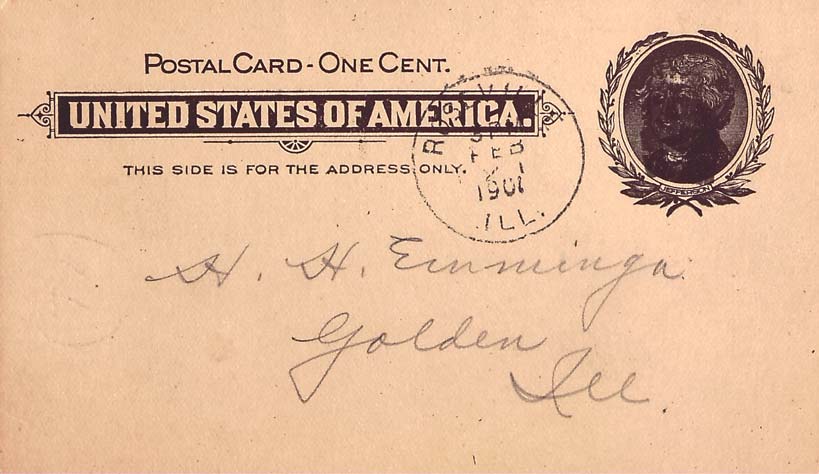 POSTAL CARD - ONE CENT.
UNITED STATES OF AMERICA.
THIS SIDE IS FOR THE ADDRESS ONLY.
FEB
ILL.
JEFFERSON
H. H. Emminga
Golden
Ill